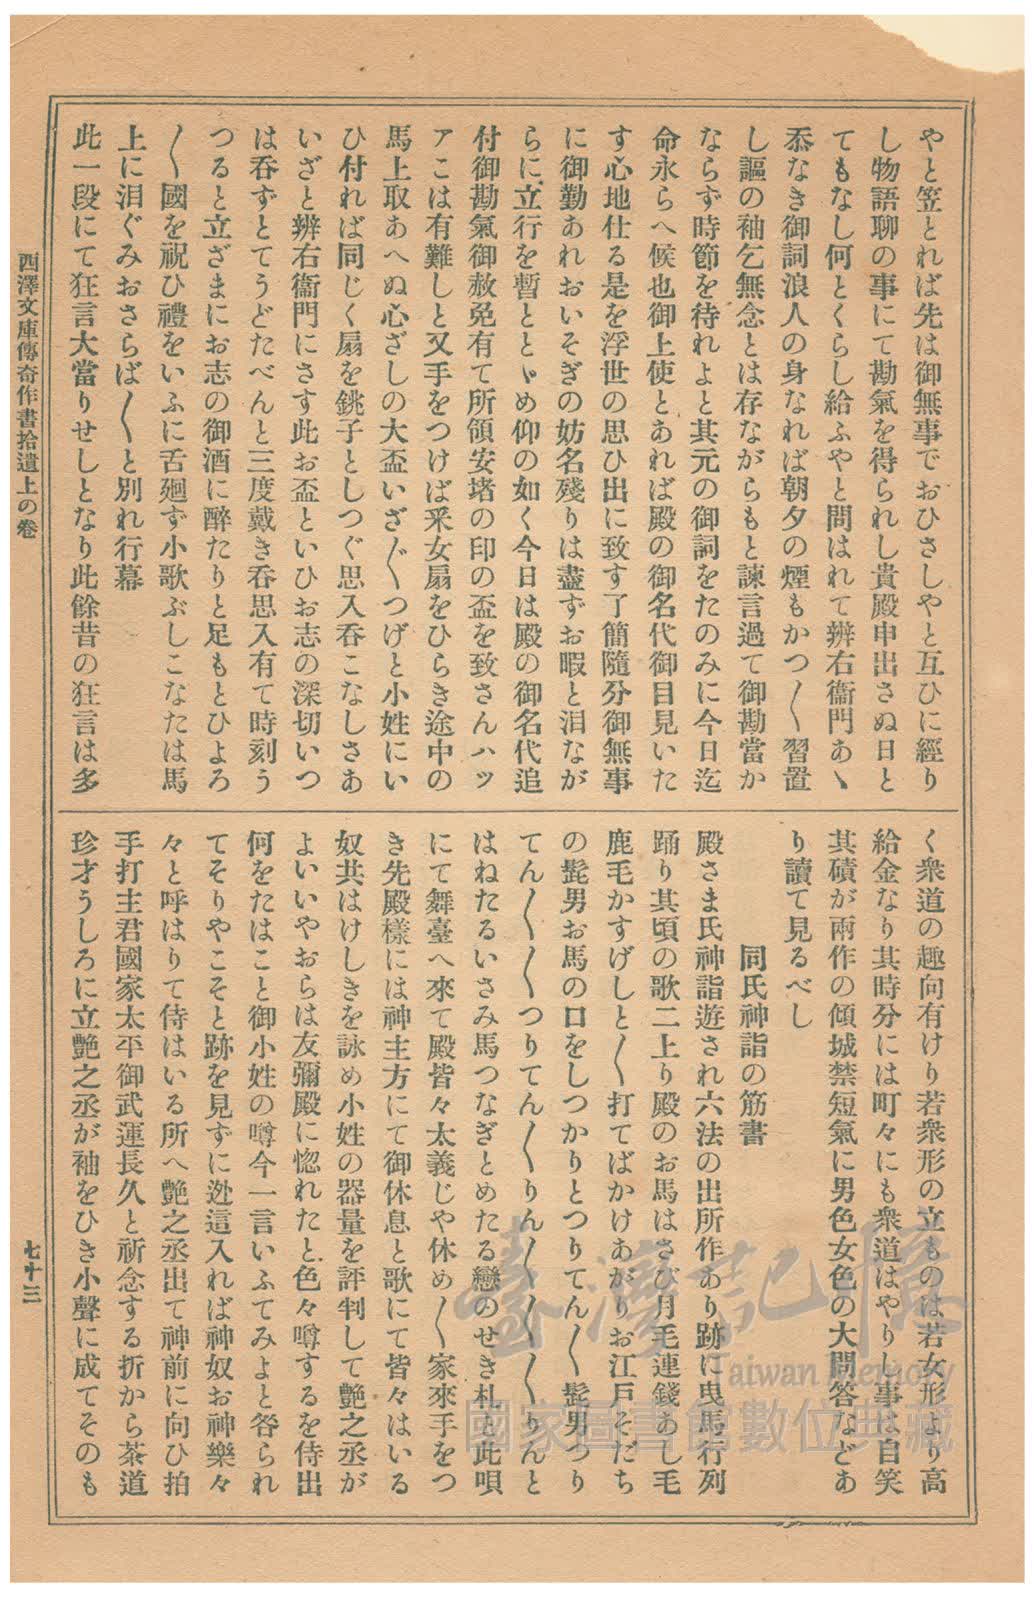 やと笠とれば先は御無事でおひさしやと互ひに經り
し物語聊の事にて勘氣を得られし貴殿申出さぬ日と
てもなし何とくらし給ふやと問はれて辨右衞門あゝ
忝なき御詞浪人の身なれば朝夕の煙もかつ〳〵習置
し謳の袖乞無念とは存ながらもと諫言過て御勘當か
ならず時節を待れよと其元の御詞をたのみに今日迄
命永らへ候也御上使とあれば殿の御名代御目見いた
す心地仕る是を浮世の思ひ出に致す了簡隨分御無事
に御勤あれおいそぎの妨名殘りは盡ずお暇と泪なが
らに立行を暫とゞめ仰の如く今日は殿の御名代追
付御勘氣御赦免有て所領安堵の印の盃を致さんハッ
アこは有難しと又手をつけば釆女扇をひらき途中の
馬上取あへぬ心ざしの大盃いざ〴〵つげと小姓にい
ひ付れば同じく扇を銚子としつぐ思入呑こなしさあ
いざと辨右衞門にさす此お盃といひお志の深切いつ
は呑ずとてうどたべんと三度戴き呑思入有て時刻う
つると立ざまにお志の御酒に醉たりと足もとひよろ
〳〵國を祝ひ禮をいふに舌廻ず小歌ぶしこなたは馬
上に泪ぐみおさらば〳〵と別れ行幕
此一段にて狂言大當りせしとなり此餘昔の狂言は多
く衆道の趣向有けり若衆形の立ものは若女形より高
給金なり其時分には町々にも衆道はやりし事は自笑
其磧が兩作の傾城禁短氣に男色女色の大問答などあ
り讀て見るべし
同氏神詣の筋書
殿さま氏神詣遊され六法の出所作あり跡に曳馬行列
踊り其頃の歌二上り殿のお馬はさび月毛連錢あし毛
鹿毛かすげしと〳〵打てばかけあがりお江戸そだち
の髭男お馬の口をしつかりとつりてん〳〵髭男つり
てん〳〵〳〵つりてん〳〵りん〳〵〳〵〳〵りんと
はねたるいさみ馬つなぎとめたる戀のせき札と此唄
にて舞臺へ來て殿皆々太義じや休め〳〵家來手をつ
き先殿樣には神主方にて御休息と歌にて皆々はいる
奴共はけしきを詠め小姓の器量を評判して艷之丞が
よいいやおらは友彌殿に惚れたと色々噂するを侍出
何をたはこと御小姓の噂今一言いふてみよと咎られ
てそりやこそと跡を見ずに迯這入れば神奴お神樂々
々と呼はりて侍はいる所へ艷之丞出て神前に向ひ拍
手打主君國家太平御武運長久と祈念する折から茶道
珍才うしろに立艷之丞が袖をひき小聲に成てそのも
西澤文庫傳奇作書拾遺上の卷
七十三
臺灣記憶
Taiwan Memory
國家圖書館數位典藏